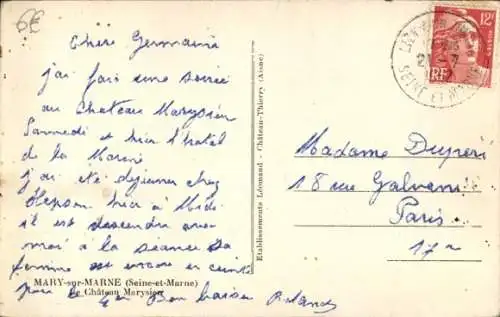 6€
Chère Germaine
j'ai fais une soirée
au Chateau Marysien
Samedi et hier l'hotel
de la Marne
j'ai été dejeuner chez
hier à Midi
il est descendu avec
moi à la séance Sa
femme est encore en
MARY-sur-MARNE (Seine-et-Marne)
Le Château Marysien
Bon baiser Roland
Etablissements Léomand - Château-Thierry (Aisne)
12F
RF
LIZY-SUR
SEINE ET M
Madame Duperi
18 rue Galvani
Paris
17e